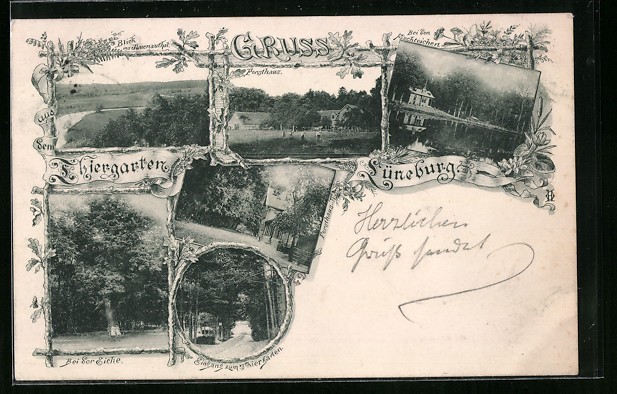 Blick
GRUSS
Bei den
Fischteichen.
Forsthaus.
aus
dem
Thiergarten
Lüneburg.
Bei der Eiche.
Eingang zum Thiergarten.
Herzlichen
Gruß sendet